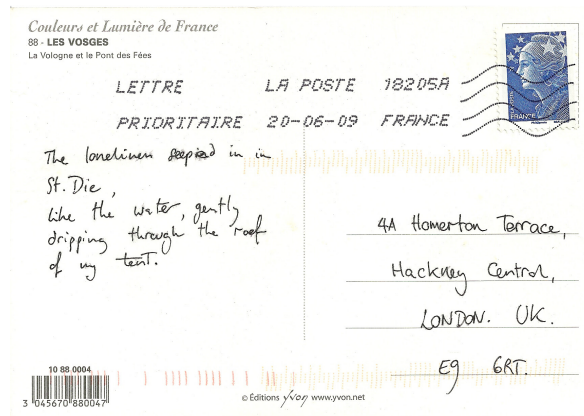 Couleurs et Lumière de France
88 - LES VOSGES
La Vologne et le Pont des Fées
LETTRE LA POSTE 18205A
PRIORITAIRE 20-06-09 FRANCE
FRANCE
The loneliness seeped in in
St. Die,
like the water, gently
dripping through the roof
of my tent.
4A Homerton Terrace,
Hackney Central,
LONDON. UK.
E9 6RT.
10 88 0004
3 045670 880047
© Éditions yvon www.yvon.net